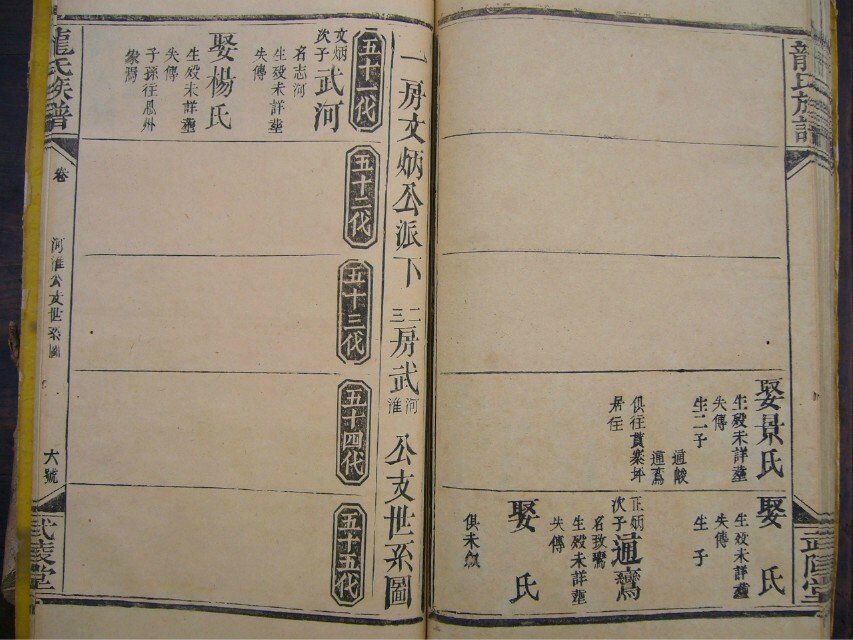 龍氏族譜
武陵堂
娶景氏
生殁未詳塟
失傳
生二子
通駿
通鸞
俱往貫寨坪
居住
娶 氏
生殁未詳塟
失傳
生 子
正炳
次子
通鸞
名玫鸞
生殁未詳塟
失傳
娶 氏
俱未叙
一房文炳公派下
二三房武河淮公支世系圖
五十一代
五十二代
五十三代
五十四代
五十五代
文炳
次子
武河
名志河
生殁未詳塟
失傳
娶楊氏
生殁未詳塟
失傳
子孫往瓜州
龍氏族譜
卷
河淮公支世系圖
六號
武陵堂